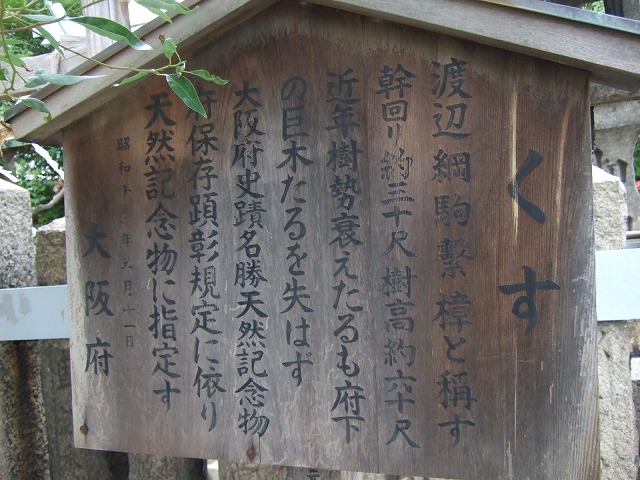 くす
渡辺綱駒繋樟と稱す
幹回り約三十尺樹高約六十尺
近年樹勢衰えたるも府下
の巨木たるを失はず
大阪府史蹟名勝天然記念物
府保存顕彰規定に依り
天然記念物に指定す
大阪府